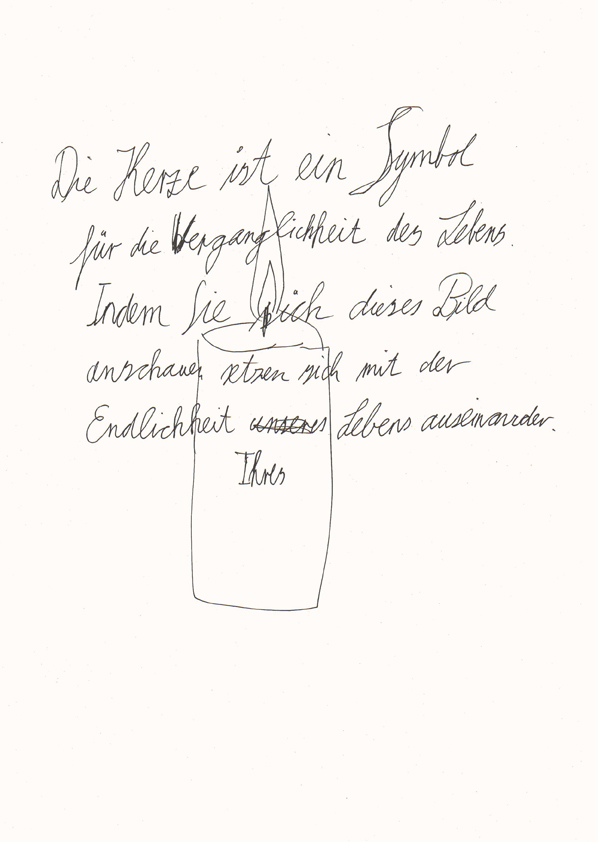 Die Kerze ist ein Symbol
für die Vergänglichkeit des Lebens.
Indem Sie sich dieses Bild
anschauen setzen sich mit der
Endlichkeit unseres Lebens auseinander.
Ihres